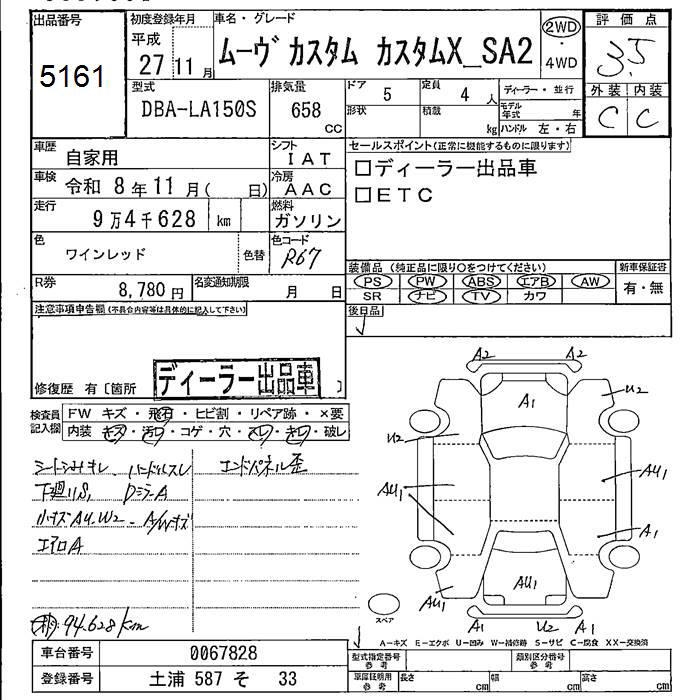 出品番号
5161
初度登録年月
平成
27 11 月
車名・グレード
ムーヴ カスタム カスタムX_SA2
2WD
・
4WD
評価点
3.5
外装 内装
C C
型式
DBA-LA150S
排気量
658
cc
ドア
5
定員
4 人
形状
積載
kg
ディーラー・並行
モデル
年式 年
ハンドル 左・右
車歴
自家用
シフト
IAT
車検
令和 8 年 11 月( 日)
冷房
AAC
走行
9 万 4 千 628 km
燃料
ガソリン
色
ワインレッド
色替
色コード
R67
R券
8,780 円
名変通知期限
月 日
セールスポイント(正常に機能するものに限ります)
□ディーラー出品車
□ETC
装備品 (純正品に限り○をつけてください)
PS PW ABS エアB AW
SR ナビ TV カワ
新車保証書
有・無
後日品
注意事項申告欄(不具合内容等は具体的に記入して下さい)
修復歴 有〔箇所 ディーラー出品車 〕
検査員
記入欄
FW キズ・飛石・ヒビ割・リペア跡・×要
内装 キズ・汚れ・コゲ・穴・スレ・キレ・破レ
エンドパネル歪
下廻りS1 DミラーA
小キズAU.W2 - A/Wキズ
エアロA
94.628km
A2 A2
A1
U2
U2
AU1
AU1
A1
AU1
AU1
A1 U2 A1
スペア
A-キズ E-エクボ U-凹み W-補修跡 S-サビ C-腐食 XX-交換済
車台番号
0067828
登録番号
土浦 587 そ 33
型式指定番号
参考
類別区分番号
参考
車庫証明用
参考
長さ cm
幅 cm
高さ cm